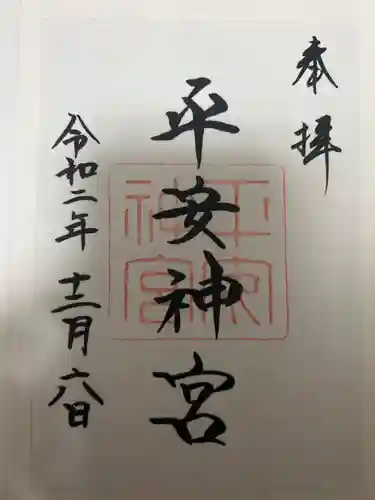 奉拝
平安神宮
平安
神宮
令和二年 十二月 六日